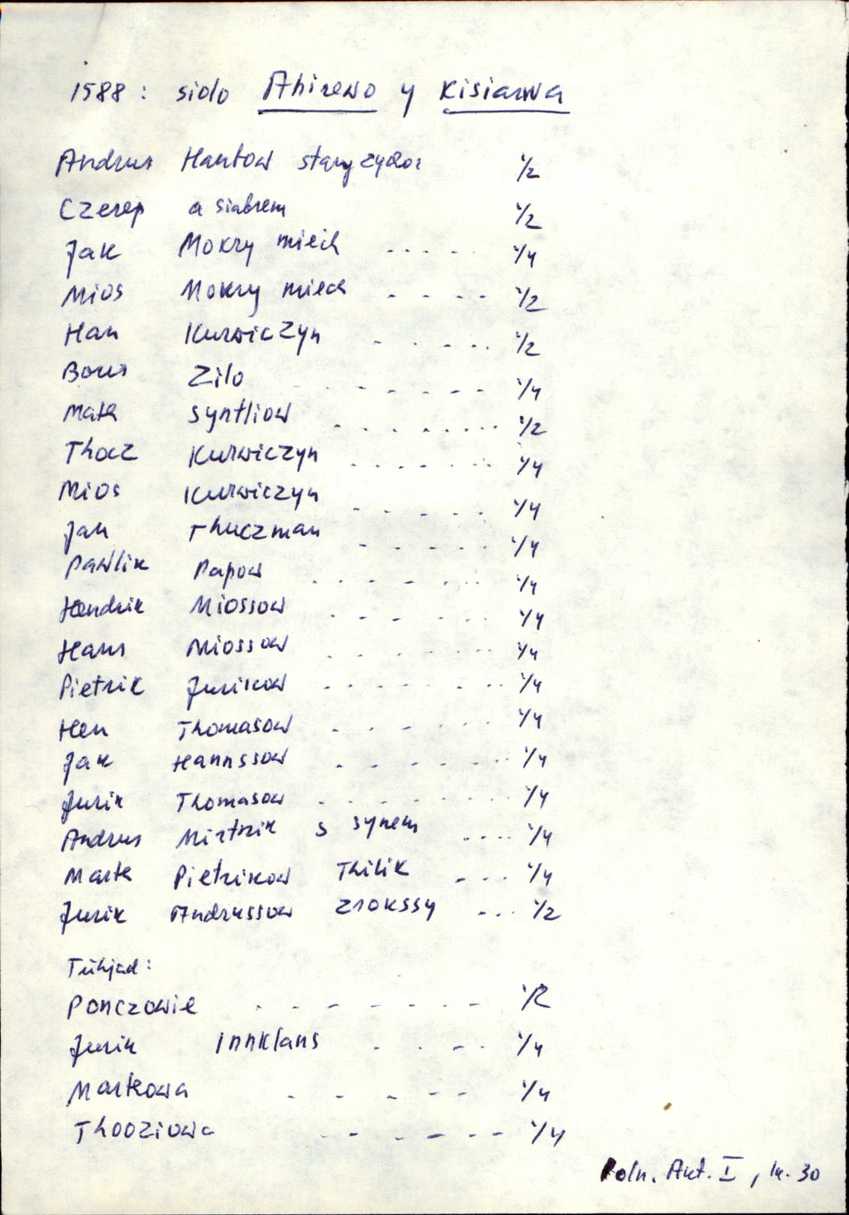 1588: siolo Ahirewo y Kisiarwa
Andrus Hantow stary zydor 1/2
Czerep a siabrem 1/2
Jak Mokry miech ..... 1/4
Mios Mokry miech .... 1/2
Han Kurwiczyn ..... 1/2
Borus Zilo ....... 1/4
Matk Syntliow ........ 1/2
Thocz Kurwiczyn ....... 1/4
Mios Kurwiczyn ...... 1/4
Jan Thuczman ..... 1/4
Pawlik Papow ...... 1/4
Hendrik Miossow ...... 1/4
Hans Miossow ...... 1/4
Pietrik Jurikow ....... 1/4
Hen Thomasow ...... 1/4
Jak Hannssow ...... 1/4
Jurik Thomasow ....... 1/4
Andrus Mirtrik s synem .... 1/4
Martk Pietrikow Thilik ... 1/4
Jurik Andrussow zrokssy ... 1/2
Tühjad:
Ponczowie ....... 1/2
Jurik Innklans .... 1/4
Martkowa ...... 1/4
Thooziowa ....... 1/4
Poln. Akt. I, lk. 30